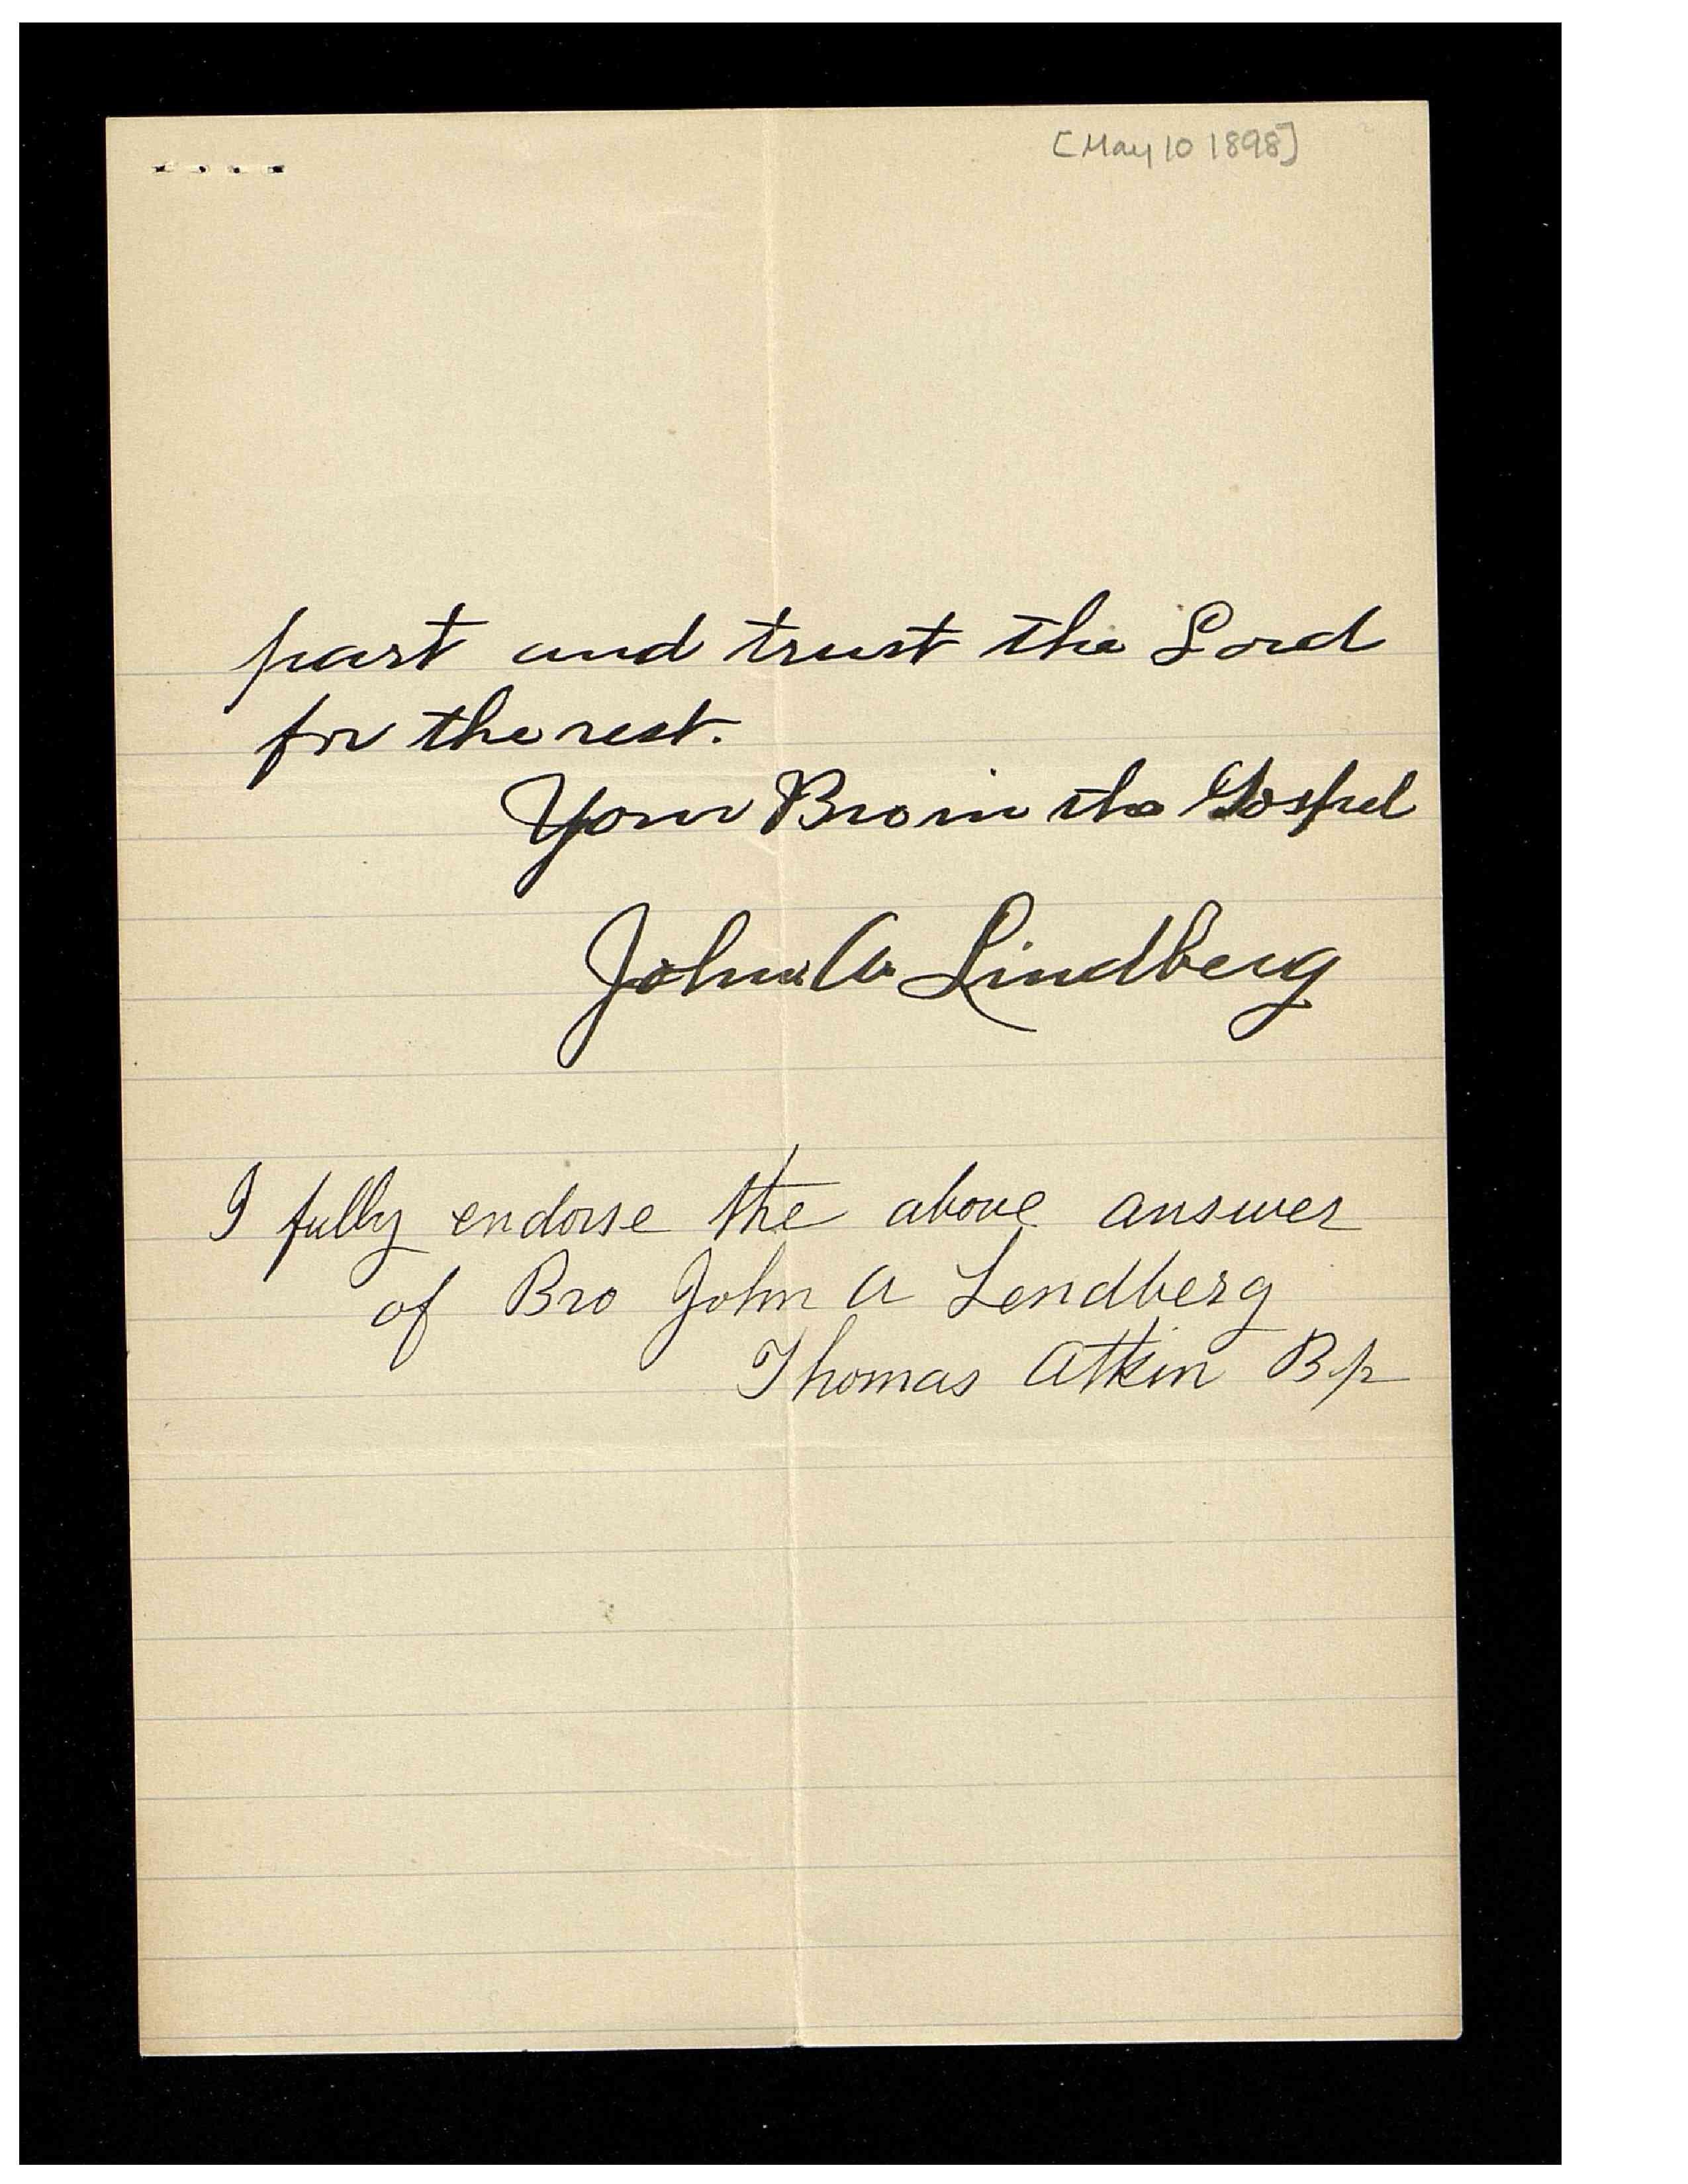 [May 10 1898]
part and trust the Lord
for the rest.
Your Bro in the Gospel
John A Lindberg
I fully endorse the above answer
of Bro John A Lendberg
Thomas Atkin Bp